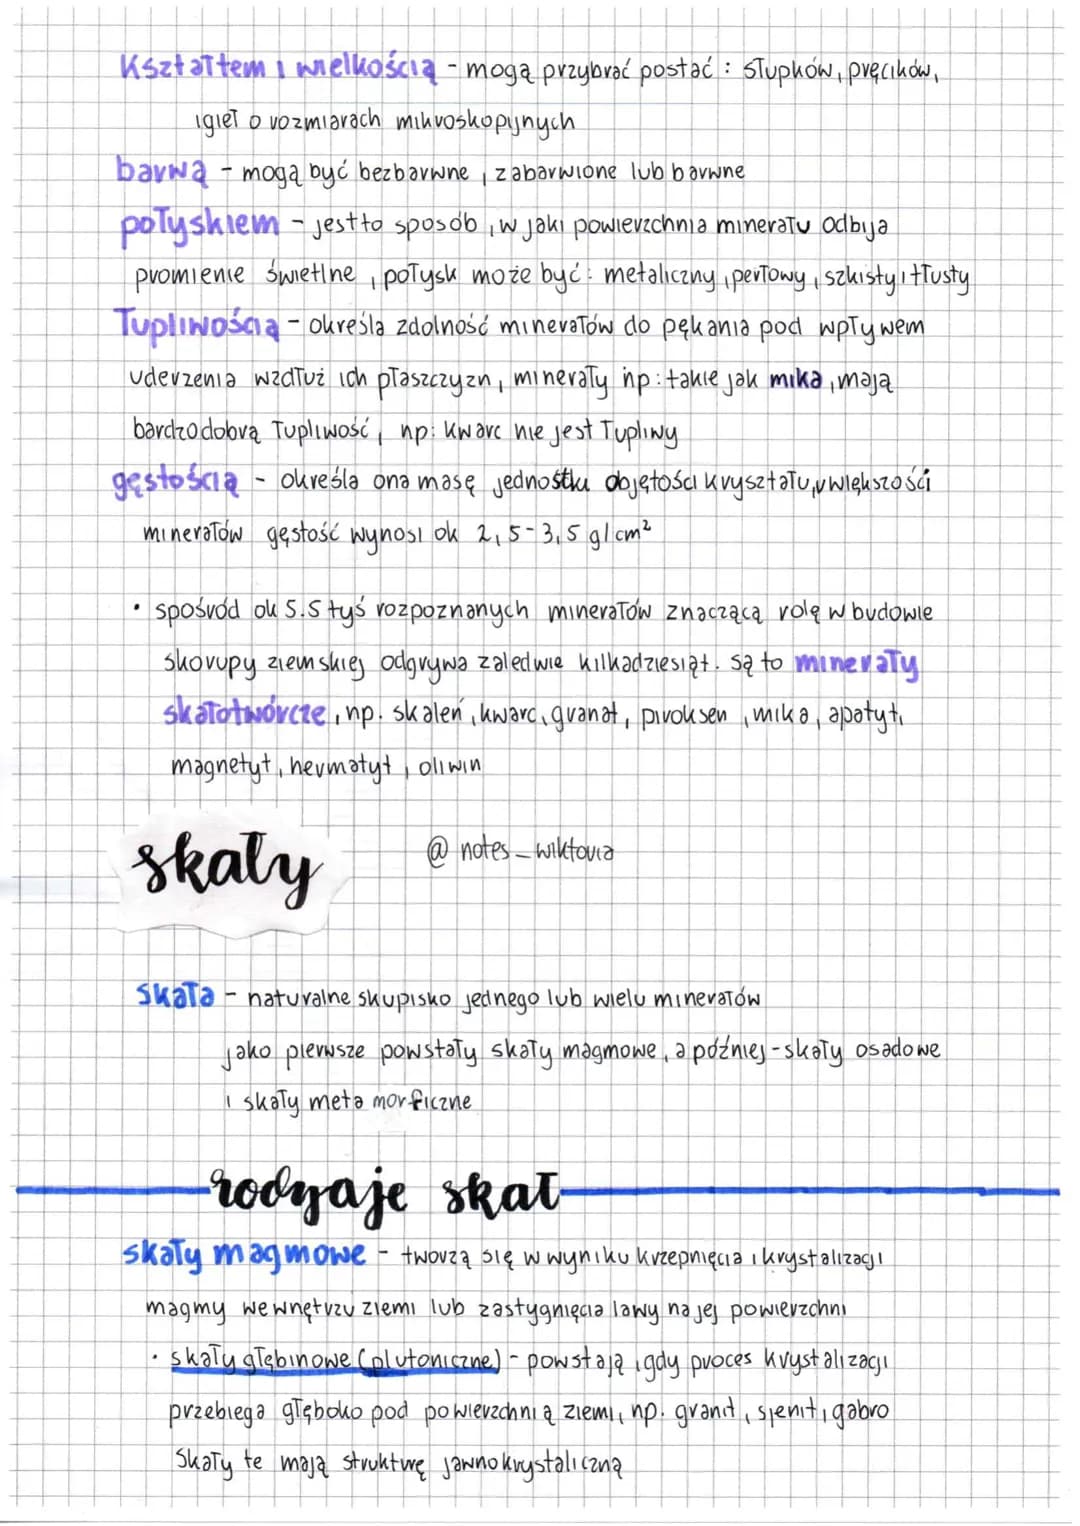 Kształtem i wielkością - mogą przybrać postać : słupków, pręcików,
igieł o rozmiarach mikroskopijnych
barwą - mogą być bezbarwne, zabarwione lub barwne
połyskiem - jest to sposób, w jaki powierzchnia minerału odbija
promienie świetlne, połysk może być: metaliczny, perłowy, szklisty i tłusty
Łupliwością - określa zdolność minerałów do pękania pod wpływem
uderzenia wzdłuż ich płaszczyzn, minerały np: takie jak mika, mają
bardzo dobrą łupliwość, np: kwarc nie jest łupliwy
gęstością - określa ona masę jednostki objętości kryształu, u większości
minerałów gęstość wynosi ok 2,5-3,5 g/cm²
• spośród ok 5.5 tyś rozpoznanych minerałów znaczącą rolę w budowie
skorupy ziemskiej odgrywa zaledwie kilkadziesiąt. są to minerały
skałotwórcze, np. skaleń, kwarc, granat, piroksen, mika, apatyt,
magnetyt, hermatyt, oliwin
skały
@ notes_wiktoria
Skała - naturalne skupisko jednego lub wielu minerałów
jako pierwsze powstały skały magmowe, a później - skały osadowe
i skały metamorficzne
rodzaje skał
skały magmowe - tworzą się w wyniku krzepnięcia i krystalizacji
magmy wewnętrzu ziemi lub zastygnięcia lawy na jej powierzchni
• skały głębinowe (plutoniczne) - powstają, gdy proces krystalizacji
przebiega głęboko pod powierzchnią ziemi, np. granit, sjenit, gabro
Skały te mają strukturę jawnokrystaliczną